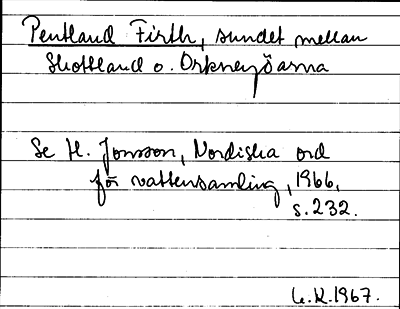 Pentland Firth, sundet mellan
Skottland o. Orkneyöarna
Se H. Jonsson, Nordiska ord
för vattensamling, 1966,
s. 232.
G.K. 1967.